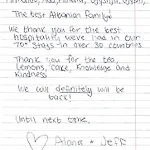 The best Albanian Family!
We thank you for the best
hospitality we've had in over
70+ stays in over 30 countries.
Thank you for the tea,
lemons, cake, knowledge and
kindness
We will definitely will be
back!
Until next time,
Alana + Jeff